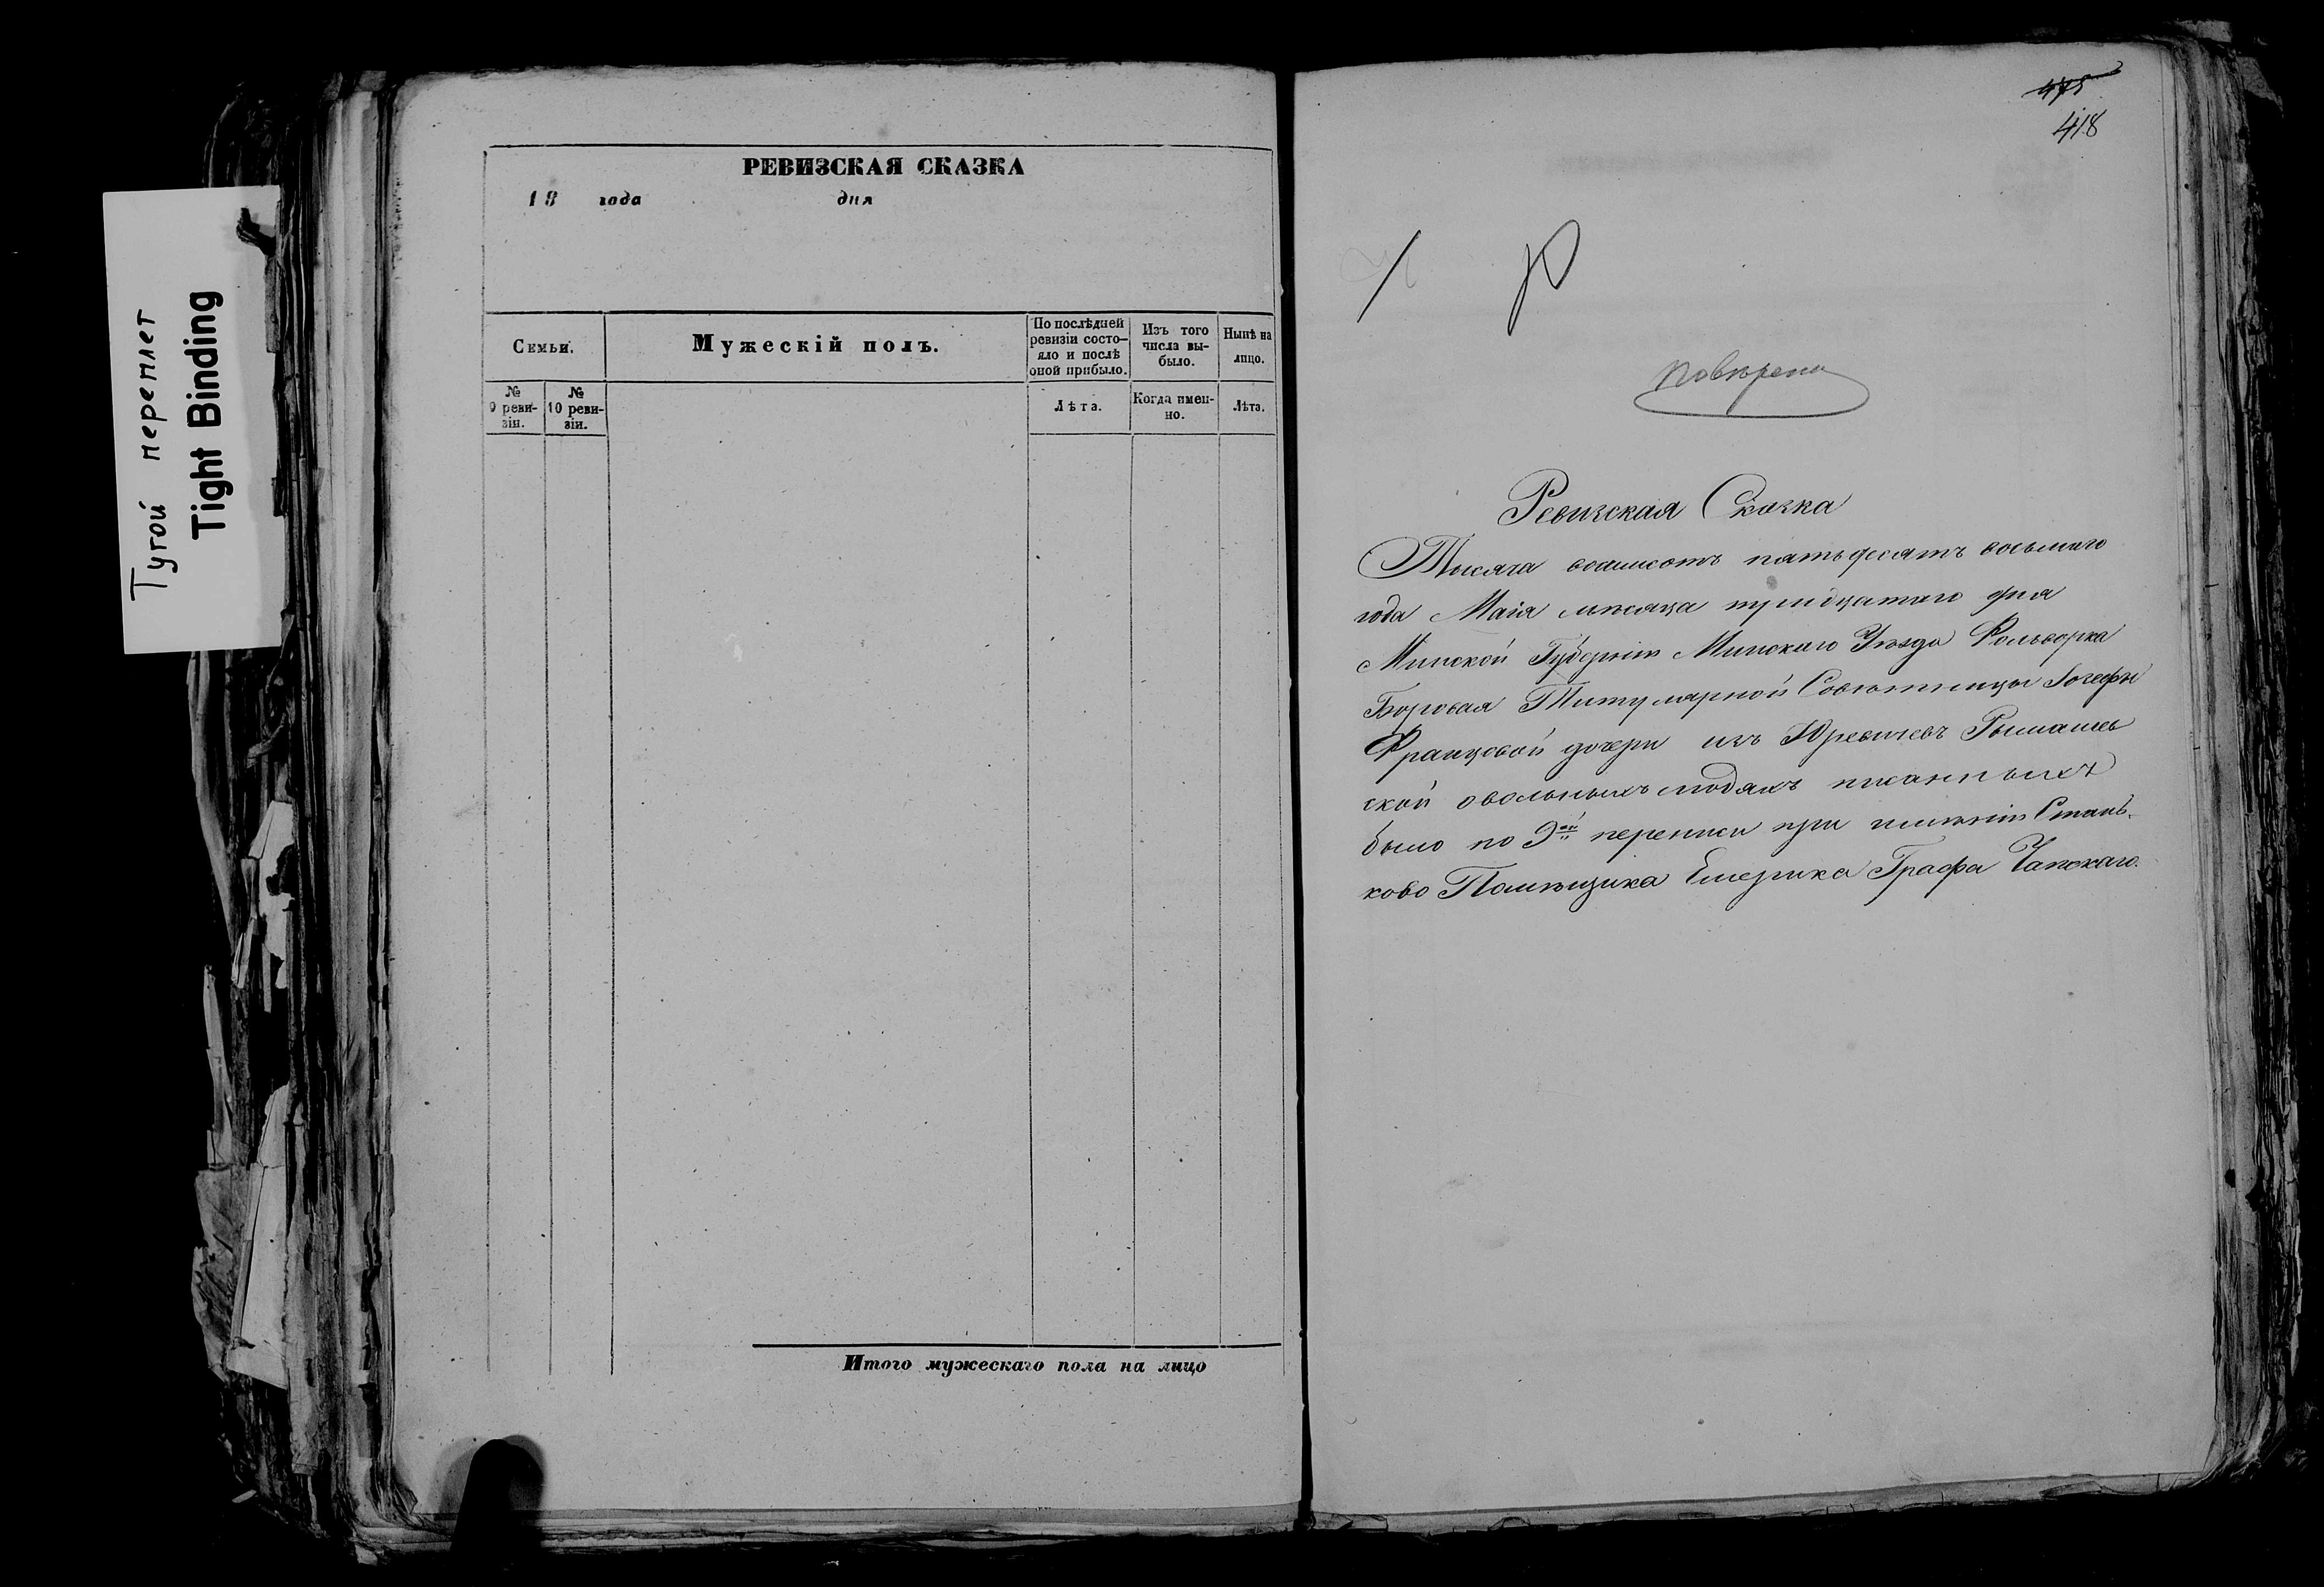 Тугой переплет
Tight Binding
РЕВИЗСКАЯ СКАЗКА
18 года дня
Семьи.
Мужескій полъ.
По послѣдней
ревизіи состо-
яло и послѣ
оной прибыло.
Изъ того
числа вы-
было.
Нынѣ на
лицо.
№
9 реви-
зіи.
№
10 реви-
зіи.
Лѣта.
Когда имен-
но.
Лѣта.
Итого мужескаго пола на лицо
475
418
повѣрена
Ревизская Сказка
Тысяча восимсотъ пятьдесятъ восьмаго
года Маія мѣсяца тридцатаго дня
Минской Губерніи Минскаго Уѣзда Фольварка
Боровая Титулярной Совѣтницы Іозефы
Францовой дочери изъ Юревичевъ Рымашев
ской о вольныхъ людяхъ писанныхъ
было по 9ой переписи при имѣніи Стань-
ково Помѣщика Емерика Графа Чапскаго.